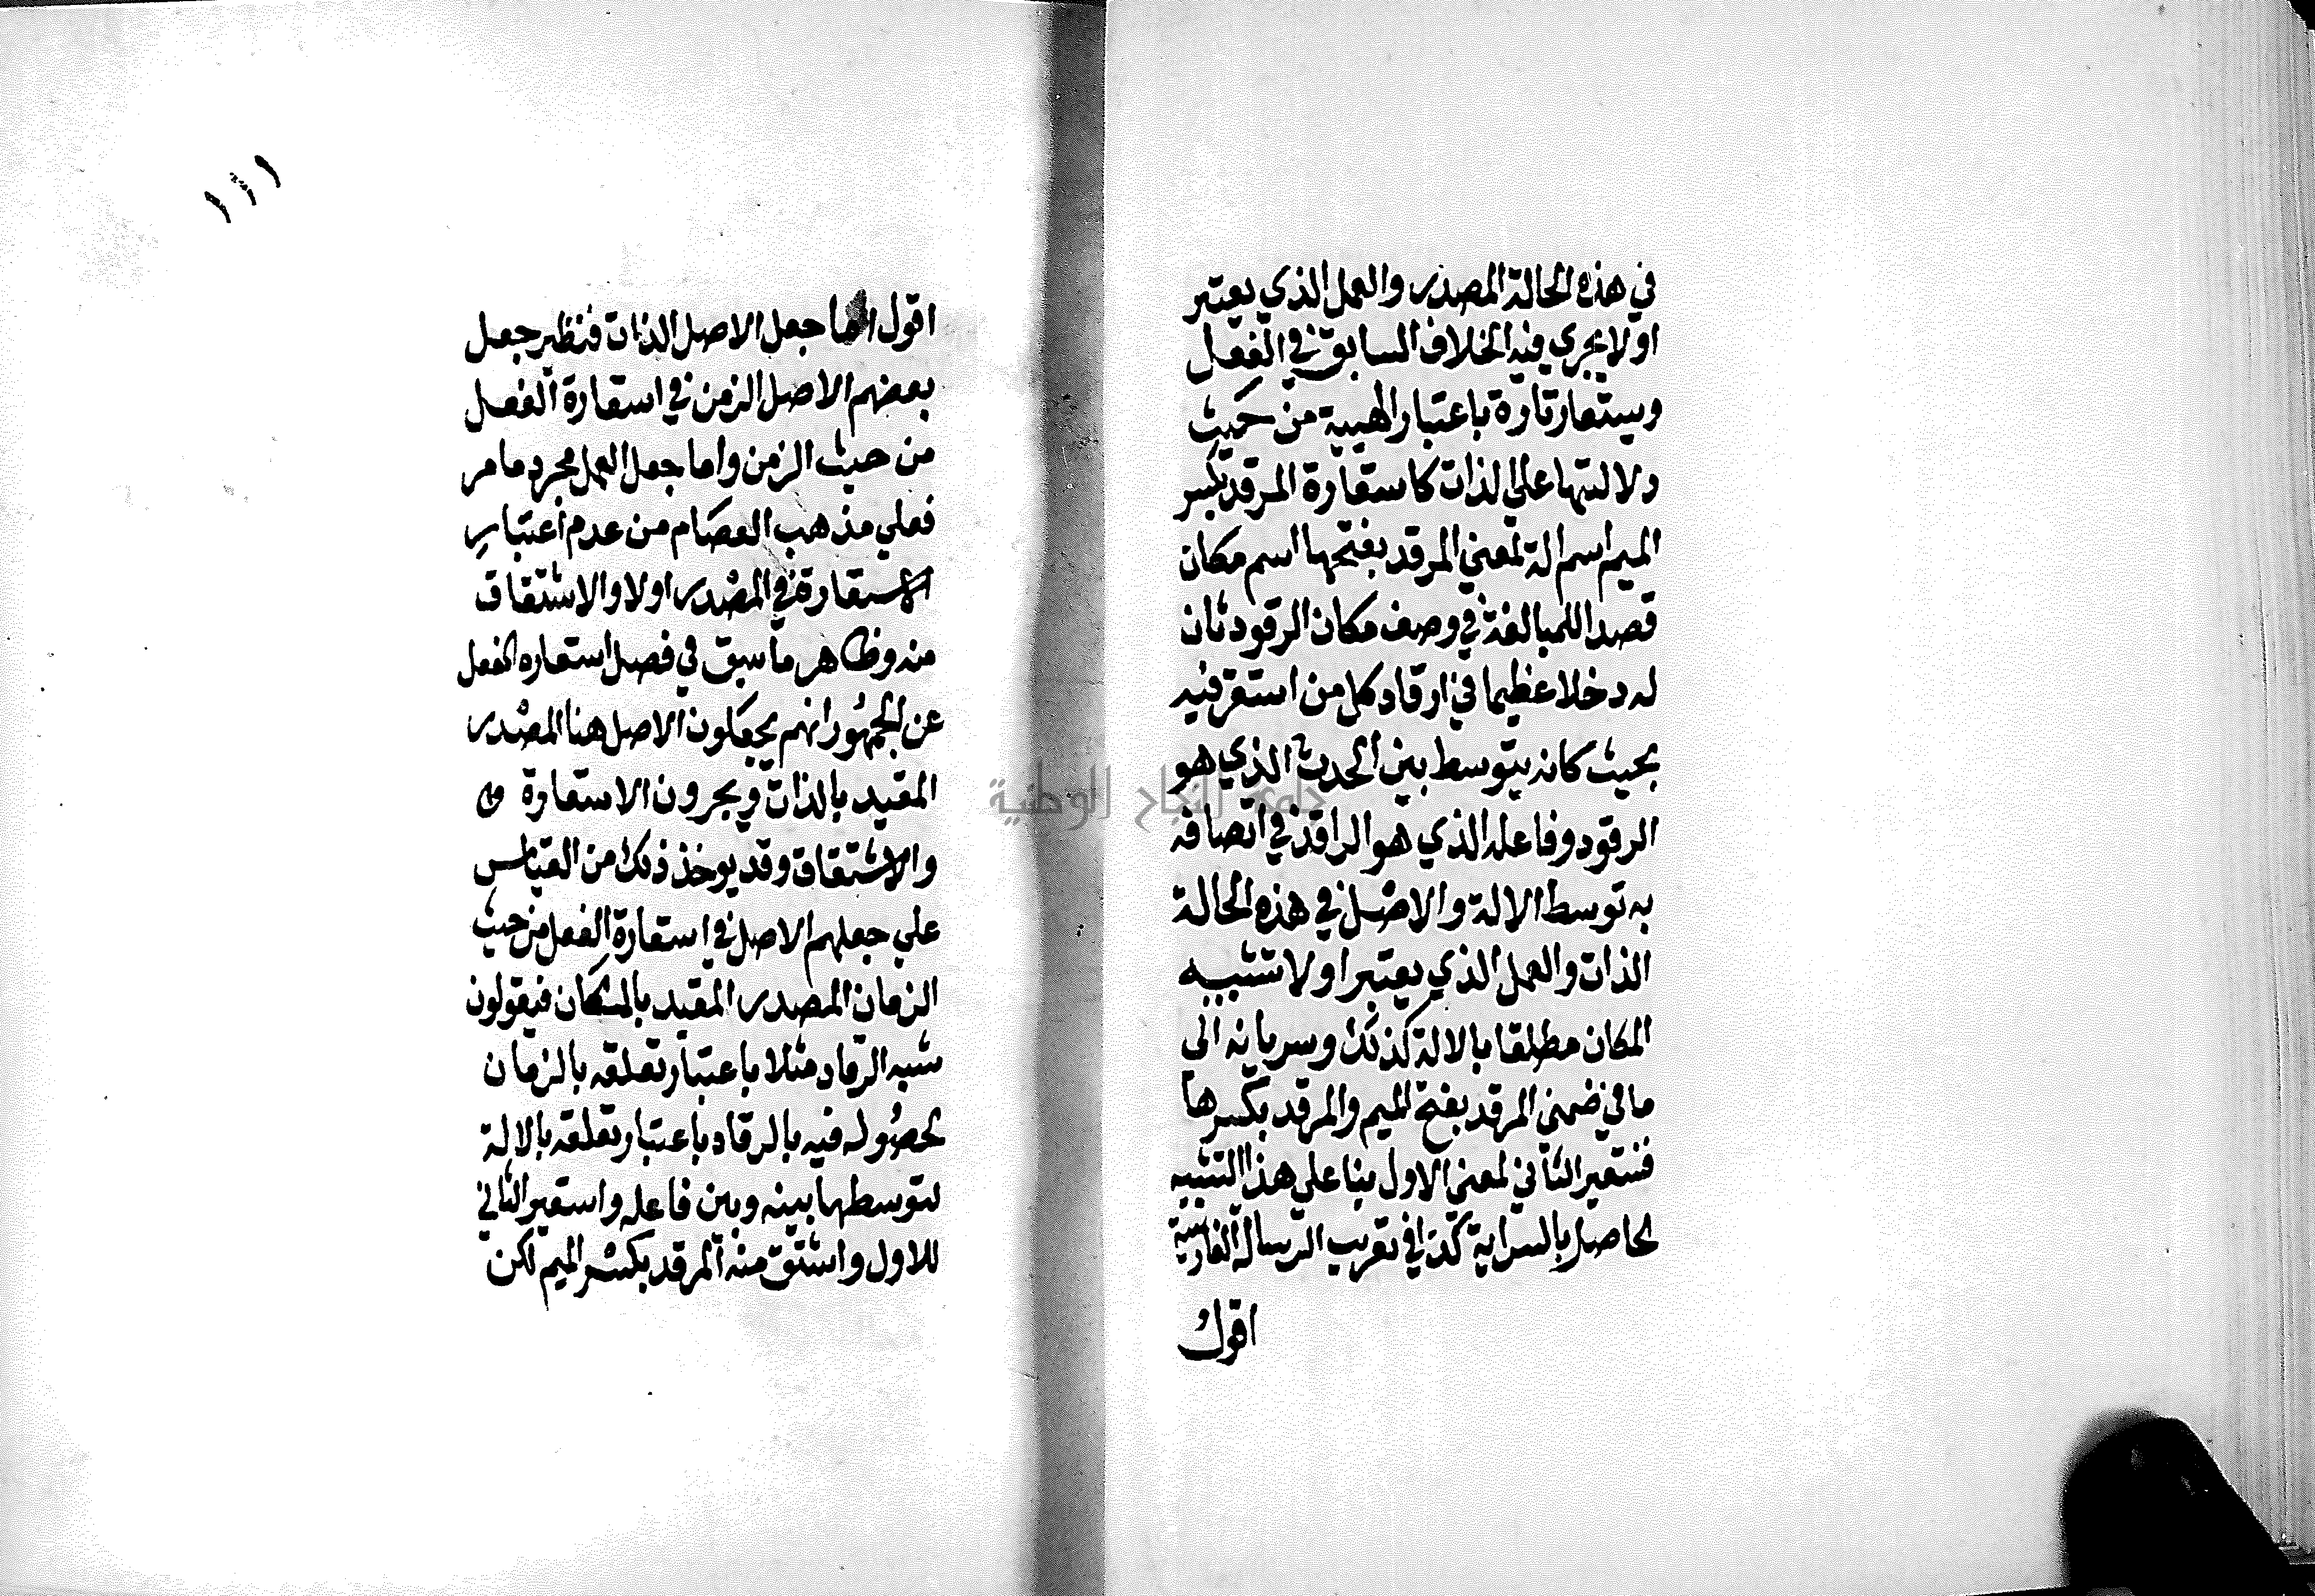 في هذه الحالة المصدر والعمل الذي يعتبر
اولا يجري فيه الخلاف السابق في الفعل
ويستعار تارة باعتبار الهيية من حيث
دلالتها علي الذات كاستعارة المرقد بكسر
الميم اسم الة لمعني المرقد بفتحها اسم مكان
قصدا للمبالغة في وصف مكان الرقود بان
له دخلا عظيما في ارقاد كل من استقر فيه
بحيث كانه يتوسط بين الحدث الذي هو
الرقود وفاعله الذي هو الراقد في اتصافه
به توسط الالة والاصل في هذه الحالة
الذات والعمل الذي يعتبر اولا تشبيه
المكان مطلقا بالالة كذلك وسريانه الى
ما في ضمني المرقد بفتح الميم والمرقد بكسرها
فنستعير الثاني لمعني الاول بنا علي هذا التشبيه
الحاصل بالسراية كذا في تعريب الرسالة الفارسية
اقول
١١١
اقول اما جعل الاصل الذات فنظير جعل
بعضهم الاصل الزمن في استعارة الفعل
من حيث الزمن واما جعل العمل مجرد ما مر
فعلي مذهب العصام من عدم اعتبار
الاستعارة في المصدر اولا والاشتقاق
منه وظاهر ما سبق في فصل استعاره الفعل
عن الجمهور انهم يجعلون الاصل هنا المصدر
المقيد بالذات ويجرون الاستعارة
والاشتقاق وقد يوخذ ذلك من القياس
علي جعلهم الاصل في استعارة الفعل من حيث
الزمان المصدر المقيد بالمكان فيقولون
شبه الرقاد مثلا باعتبار تعلقه بالزمان
لحصوله فيه بالرقاد باعتبار تعلقه بالالة
لتوسطها بينه وبين فاعله واستعير الثاني
للاول واشتق منه المرقد بكسر الميم لكن
جامعة النجاح الوطنية